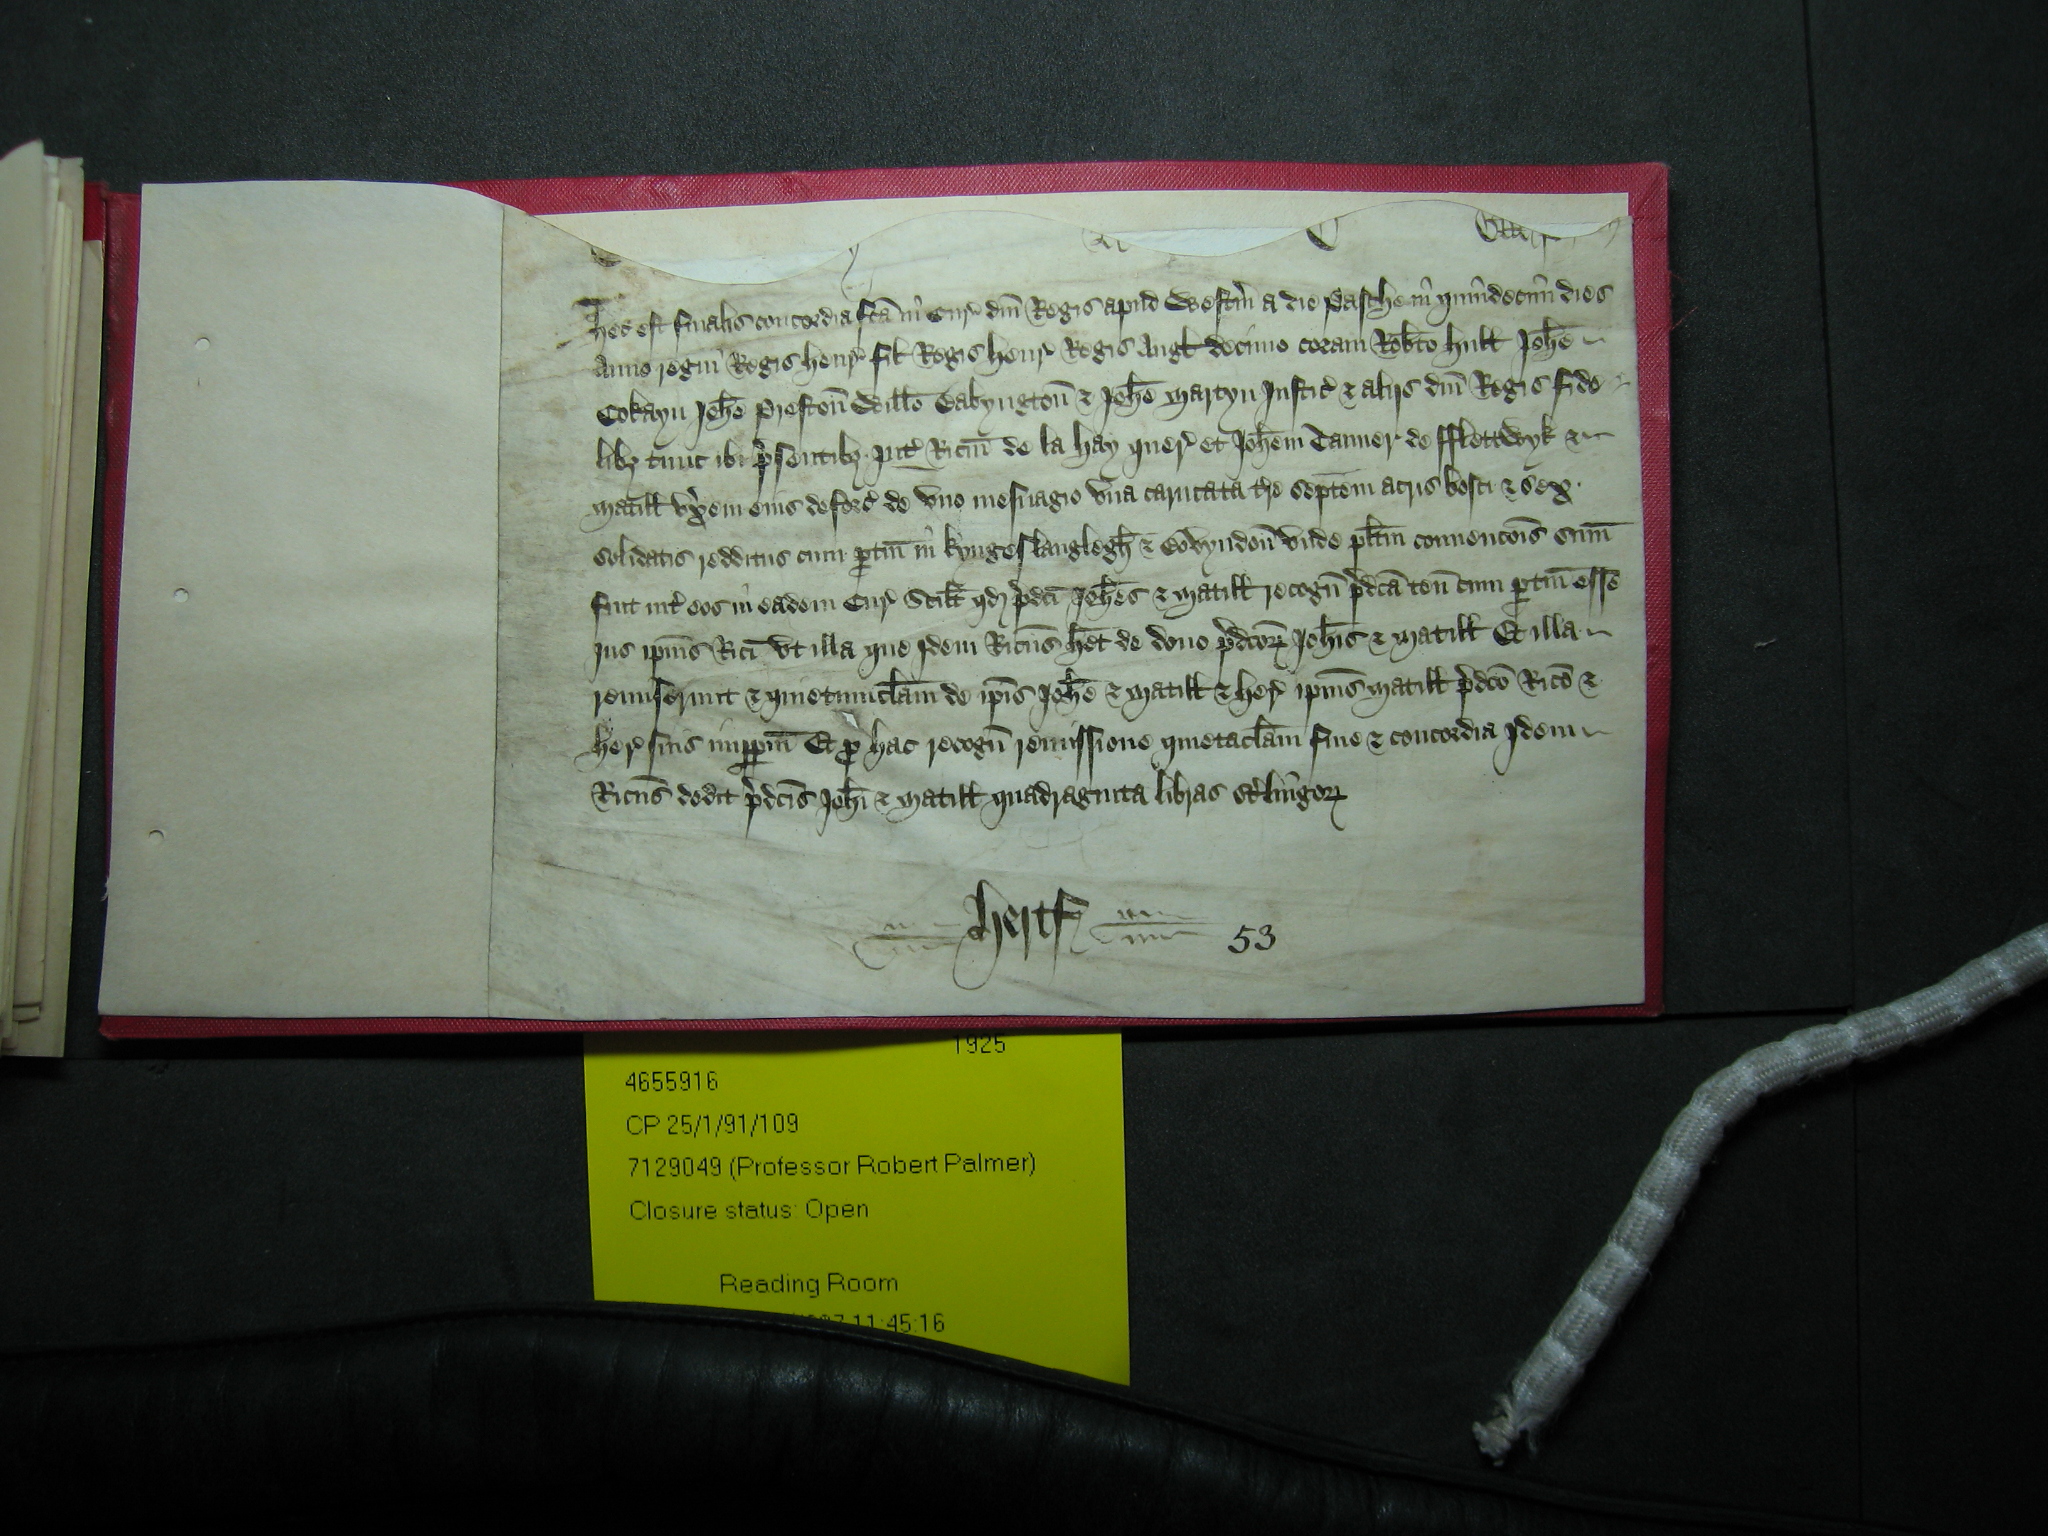 Hec est finalis concordia fc̄a in Cur' dn̄i Regis apud Westm̄ a die Pasche in quindecim dies
Anno regni Regis Henr' fil' Regis Henr' Regis Angl' decimo coram Rob̄to Hull Joh̄e
Cokayn Joh̄e Preston̄ Will̄o Babyngton̄ & Joh̄e Martyn Justic' & aliis dn̄i Regis fide
lib3 tunc ibi p'sentib3 Int' Ric̄m de la Hay quer' et Joh̄em Tanner de fflettwyk &
Matill' vx̄em eius deforc' de vno mesuagio vna carucata t're septem acris bosci & sex
solidatis redditus cum ptin̄ in Kyngeslanglegh̄ & Bovyndon̄ vnde pl̄itm conuencōis sum̄
fuit int' eos in eadem Cur' Scil't qd p'dc̄i Joh̄es & Matill' recogn̄ p'dc̄a ten̄ cum ptin̄ esse
ius ip̄ius Ric̄i vt illa que Idem Ric̄us h̄et de dono p'dc̄or' Joh̄is & Matill' Et illa
remiserunt & quietumclam̄ de ip̄is Joh̄e & Matill' & her' ip̄ius Matill' p'dc̄o Ric̄o &
her' suis imppm̄ Et p hac recogn̄ remissione quietaclam̄ fine & concordia Idem
Ric̄us dedit p'dc̄is Joh̄i & Matill' quadraginta libras st'lingor'
Hertf'
53
1925
4655916
CP 25/1/91/109
7129049 (Professor Robert Palmer)
Closure status: Open
Reading Room
11:45:16